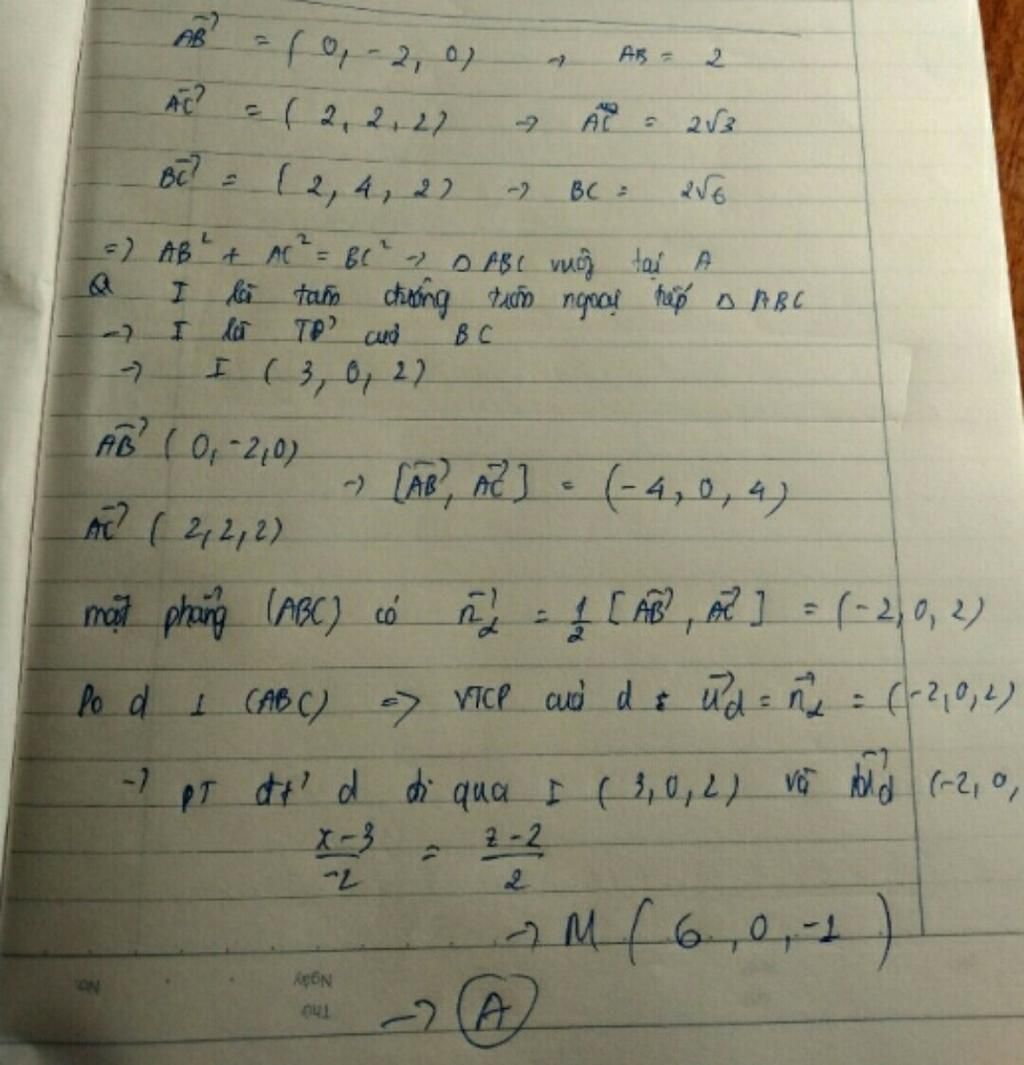 AB⃗ = ( 0, -2, 0) → AB = 2
AC⃗ = ( 2, 2, 2) → AC = 2√3
BC⃗ = ( 2, 4, 2) → BC = 2√6
=> AB² + AC² = BC² → △ ABC vuông tại A
I là tâm đường tròn ngoại tiếp △ ABC
→ I là TĐ' của BC
→ I ( 3, 0, 2)
AB⃗ ( 0, -2, 0)
→ [AB⃗, AC⃗] = (-4, 0, 4)
AC⃗ ( 2, 2, 2)
mặt phẳng (ABC) có n⃗α = 1/2 [AB⃗, AC⃗] = (-2, 0, 2)
Do d ⊥ (ABC) => VTCP của d : u⃗d = n⃗α = (-2, 0, 2)
→ PT đt' d đi qua I ( 3, 0, 2) và u⃗d (-2, 0,
x-3/-2 = z-2/2
→ M ( 6, 0, -1 )
→ A
No.
Ngày
Thứ